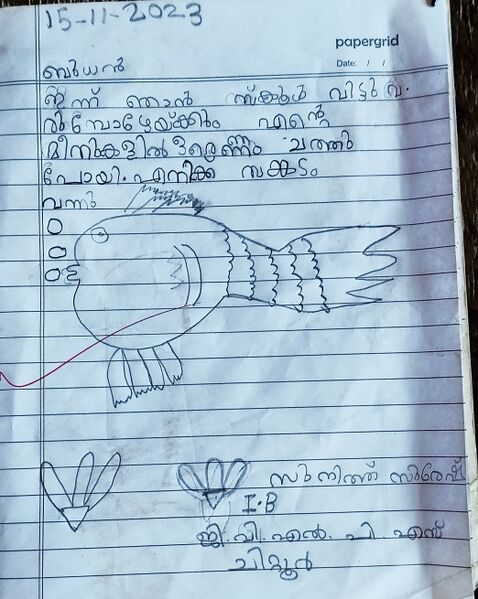 15-11-2023
papergrid
Date: / /
ബുധൻ
ഇന്ന് ഞാൻ സ്കൂൾ വിട്ടു വ.
ൽമ്പോഴേയ്ക്കും എൻ്റെ
മീനുകളിൽ ഒരെണ്ണം ചത്തു
പോയി. എനിക്ക സങ്കടം
വന്നു
സുനിത്ത് സുരേഷ്
I.B
ജി.വി.എൽ.പി.എസ്
ചിറ്റൂർ